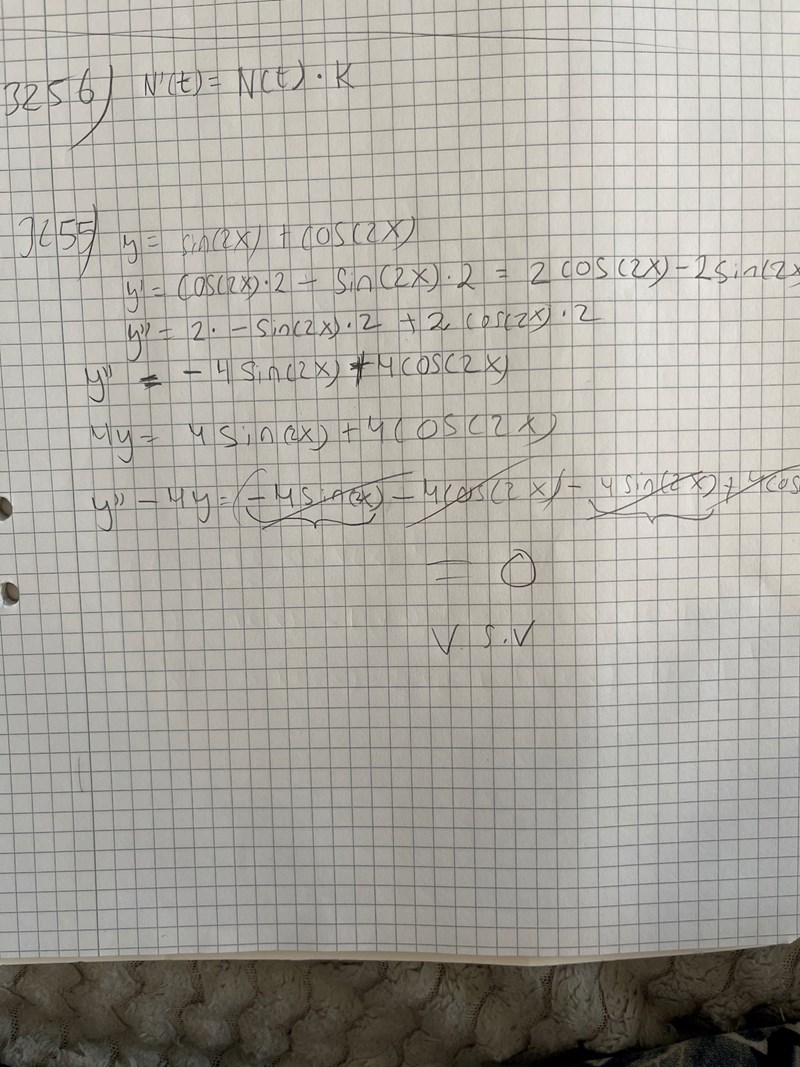 3256) N'(t) = N(t) · K
3255) y = sin(2x) + cos(2x)
y' = cos(2x)·2 - sin(2x)·2 = 2cos(2x) - 2sin(2x
y'' = 2· -sin(2x)·2 + 2 cos(2x)·2
y'' = - 4sin(2x) + 4cos(2x)
4y = 4sin(2x) + 4cos(2x)
y'' - 4y = (-4sin(2x) - 4cos(2x) - 4sin(2x) + 4cos
= 0
V.S.V